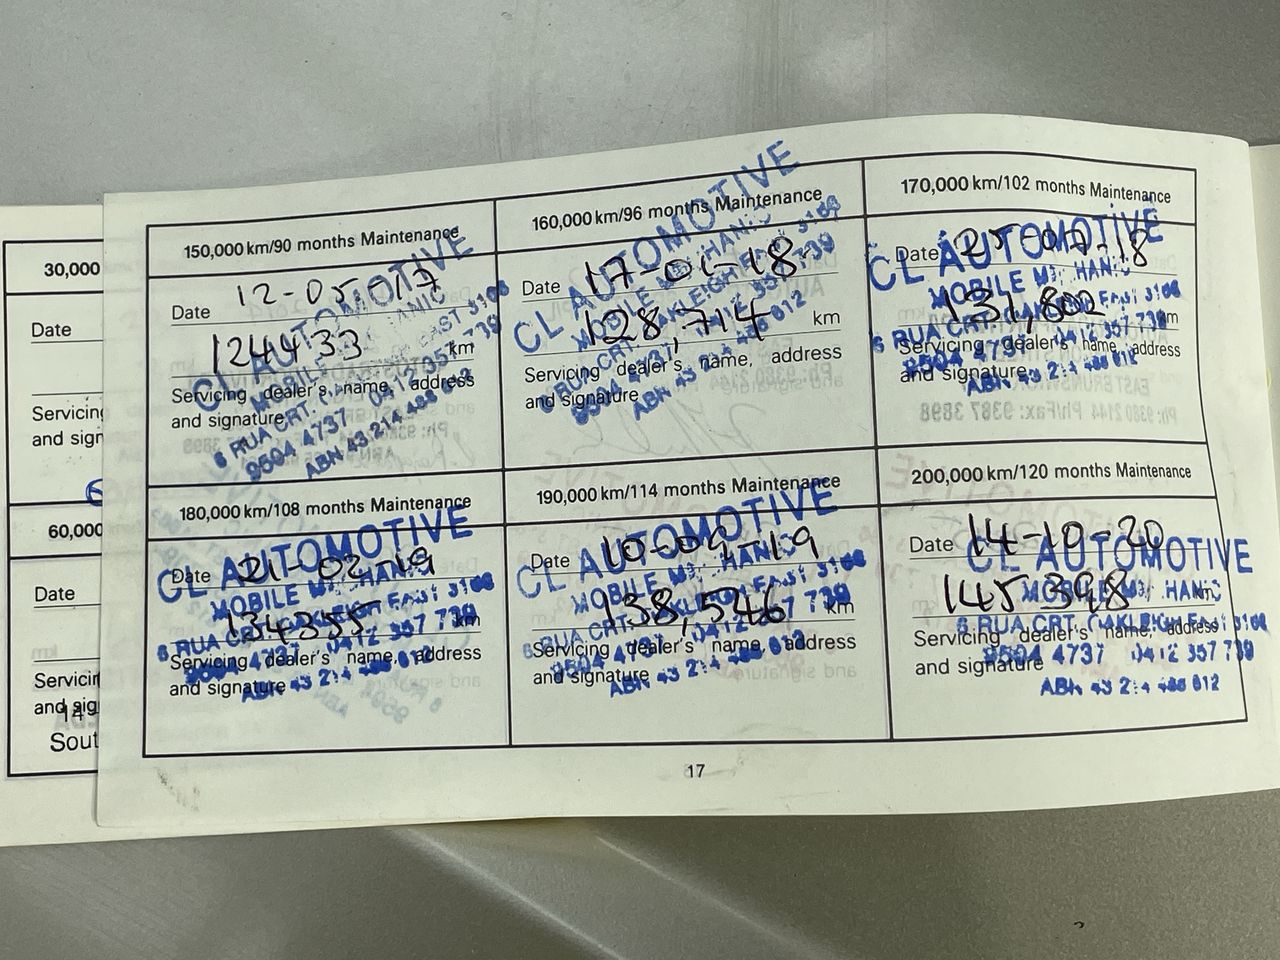 30,000
Date
Servicing
and sign
6
60,000
Date
Servicin
and sig
14
Sout
150,000 km/90 months Maintenance
Date 12-05-017
124433 km
Servicing dealer's name, address
and signature
CL AUTOMOTIVE
MOBILE MECHANIC
6 RUA CRT. OAKLEIGH EAST 3166
9504 4737 0412 357 739
ABN 43 214 486 612
160,000 km/96 months Maintenance
Date 17-01-18
128,714 km
Servicing dealer's name, address
and signature
CL AUTOMOTIVE
MOBILE MECHANIC
6 RUA CRT. OAKLEIGH EAST 3166
9504 4737 0412 357 739
ABN 43 214 486 612
170,000 km/102 months Maintenance
Date 25-07-18
131,802 km
Servicing dealer's name, address
and signature
CL AUTOMOTIVE
MOBILE MECHANIC
6 RUA CRT. OAKLEIGH EAST 3166
9504 4737 0412 357 739
ABN 43 214 486 612
180,000 km/108 months Maintenance
Date 21-02-19
134355 km
Servicing dealer's name, address
and signature
CL AUTOMOTIVE
MOBILE MECHANIC
6 RUA CRT. OAKLEIGH EAST 3166
9504 4737 0412 357 739
ABN 43 214 486 612
190,000 km/114 months Maintenance
Date 10-09-19
138,546 km
Servicing dealer's name, address
and signature
CL AUTOMOTIVE
MOBILE MECHANIC
6 RUA CRT. OAKLEIGH EAST 3166
9504 4737 0412 357 739
ABN 43 214 486 612
200,000 km/120 months Maintenance
Date 14-10-20
145398 km
Servicing dealer's name, address
and signature
CL AUTOMOTIVE
MOBILE MECHANIC
6 RUA CRT. OAKLEIGH EAST 3166
9504 4737 0412 357 739
ABN 43 214 486 612
17